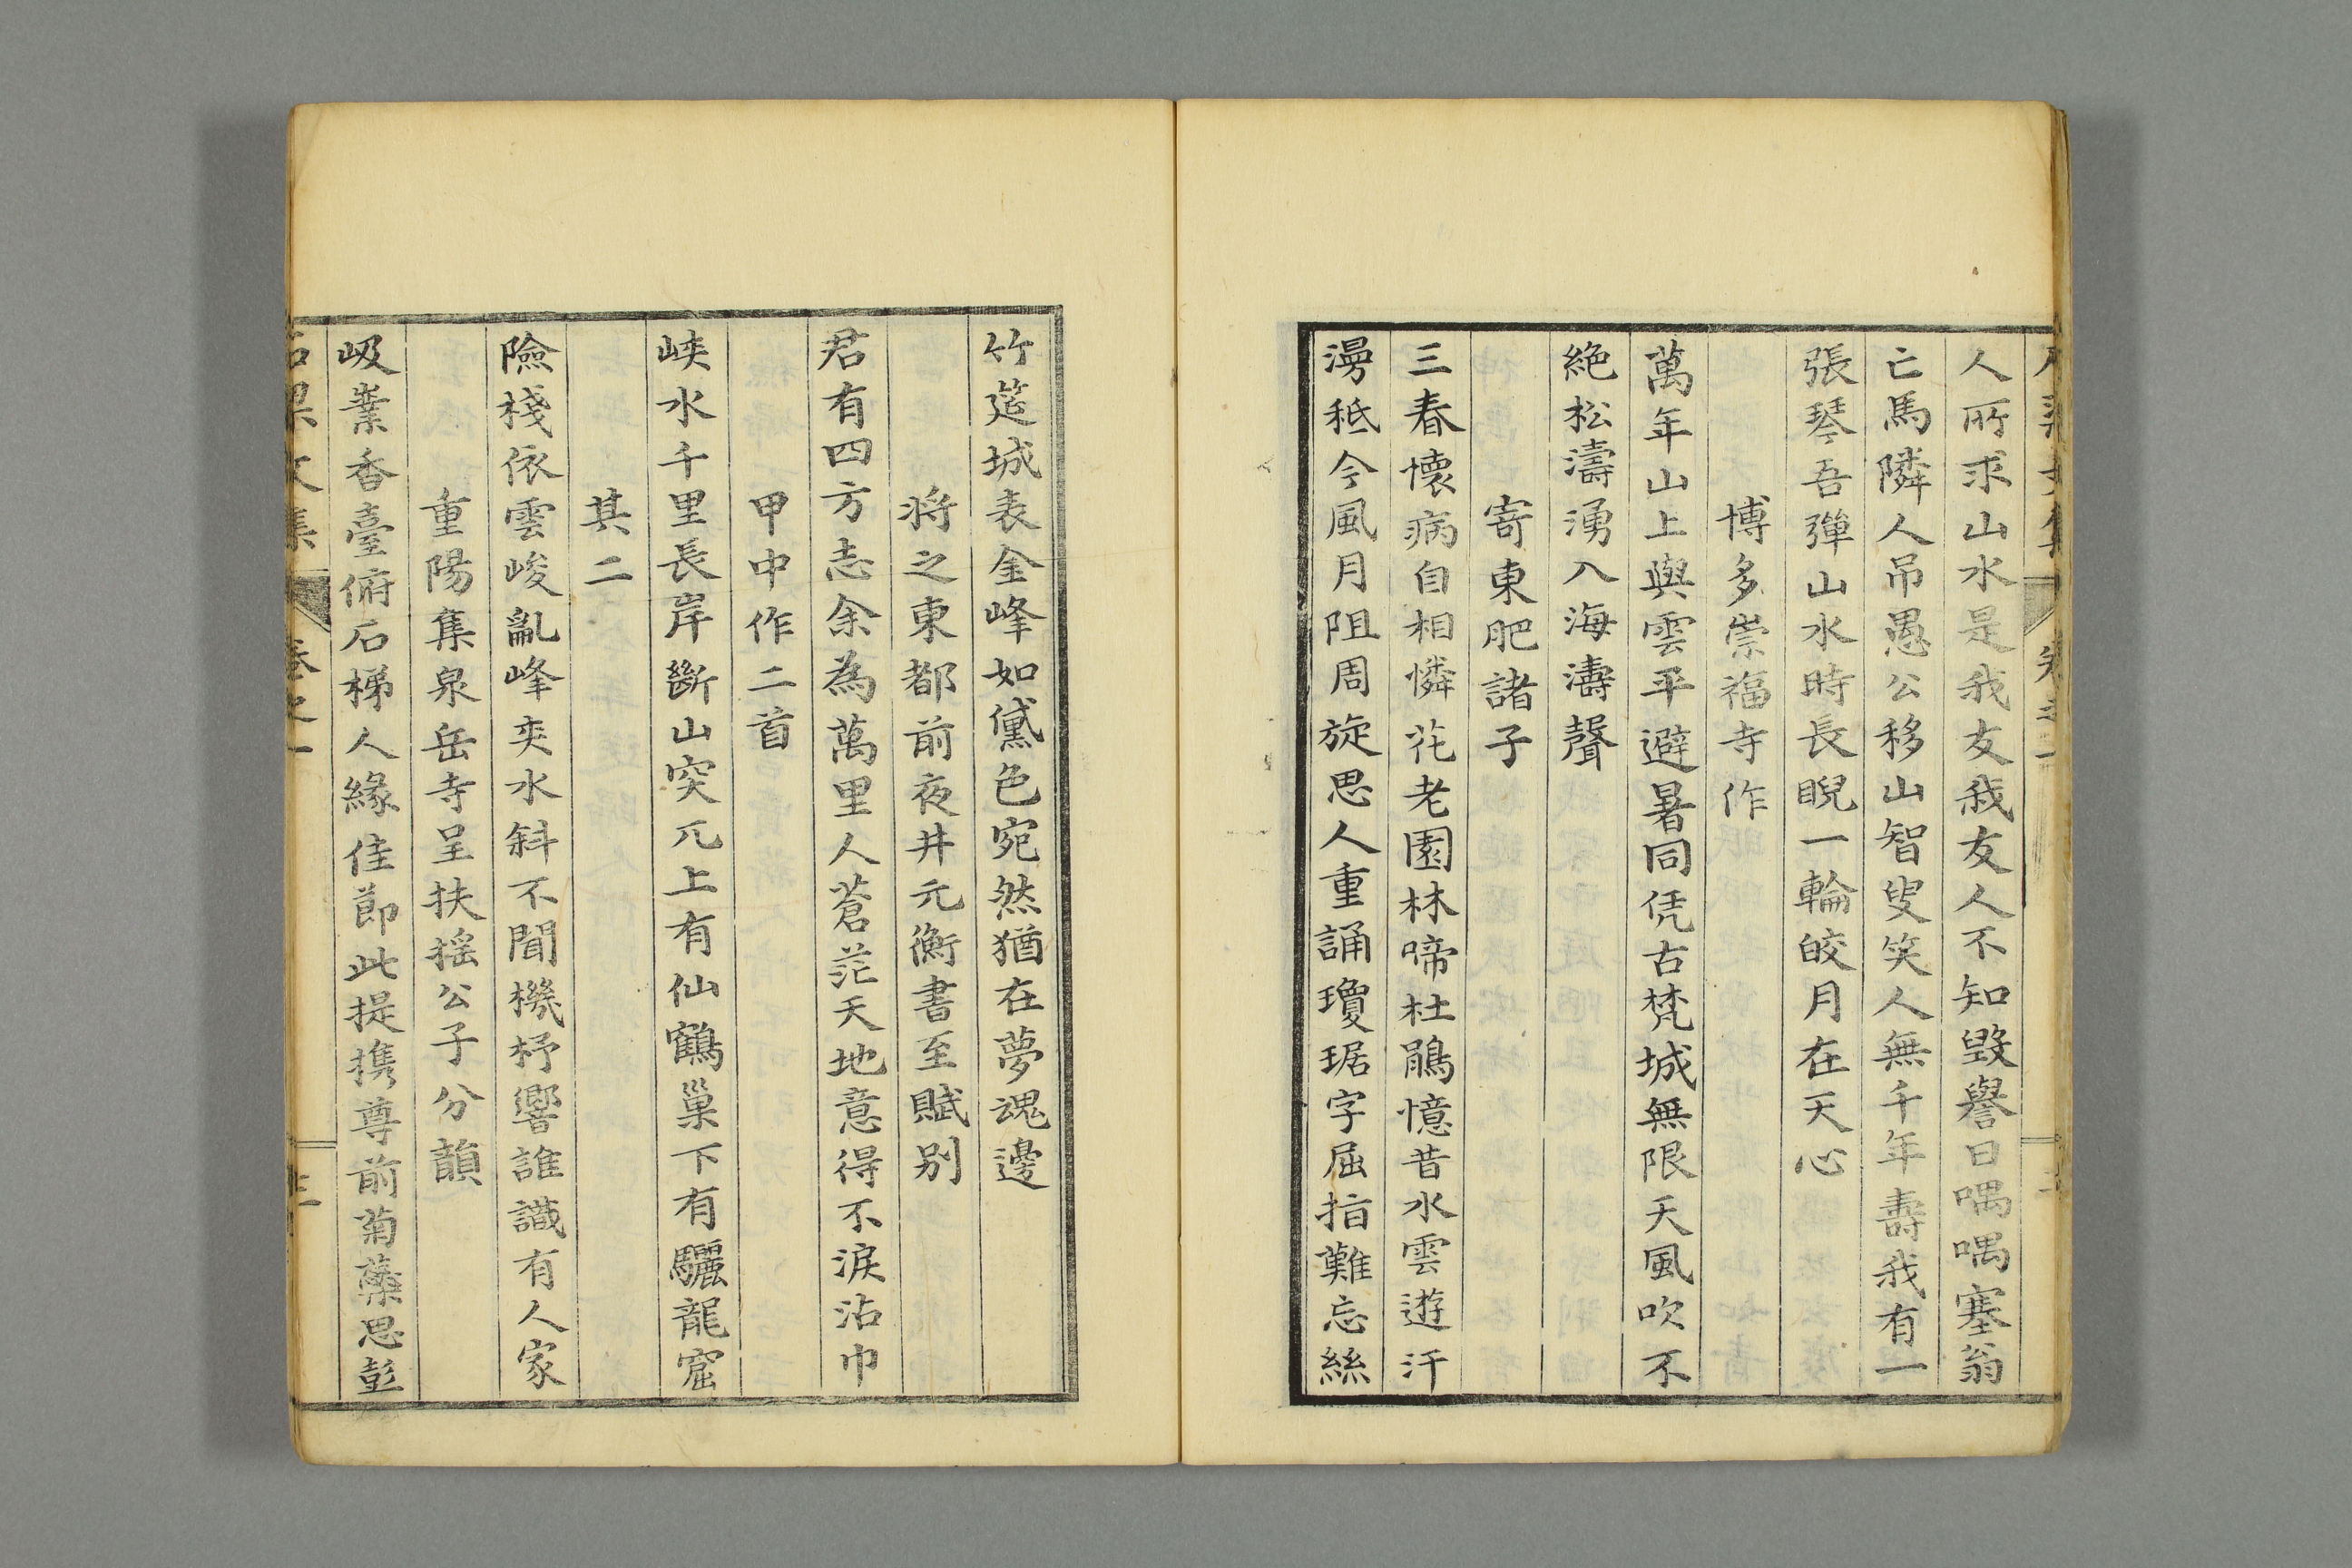 人所求山水是我友我友人不知毀譽日喁喁塞翁
亡馬隣人吊愚公移山智叟笑人無千年壽我有一
張琴吾彈山水時長睨一輪皎月在天心
博多崇福寺作
萬年山上與雲平避暑同凭古梵城無限天風吹不
絶松濤湧入海濤聲
寄東肥諸子
三春懷病自相憐花老園林啼杜鵑憶昔水雲遊汗
漫秪今風月阻周旋思人重誦瓊琚字屈指難忘絲
竹筵城表金峰如黛色宛然猶在夢魂邊
將之東都前夜井元衡書至賦別
君有四方志余為萬里人蒼茫天地意得不淚沾巾
甲中作二首
峽水千里長岸斷山突兀上有仙鶴巢下有驪龍窟
其二
險棧依雲峻亂峰夾水斜不聞機杼響誰識有人家
重陽集泉岳寺呈扶搖公子分韻
岋嶪香臺俯石梯人緣佳節此提携尊前菊蘂思彭
石梁文集 卷之一